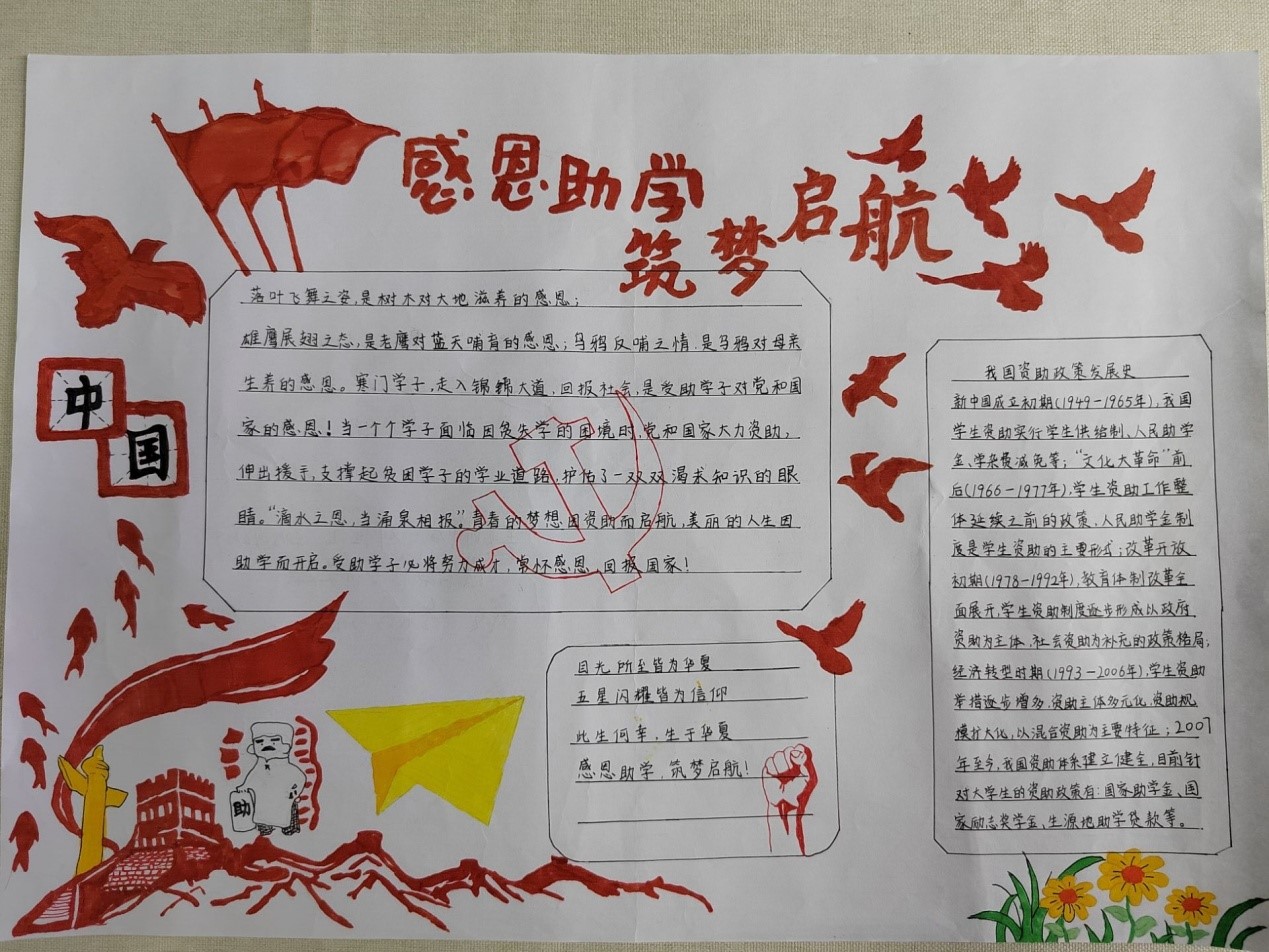 感恩助学
筑梦启航
中
国
落叶飞舞之姿,是树木对大地滋养的感恩;
雄鹰展翅之态,是老鹰对蓝天哺育的感恩;乌鸦反哺之情,是乌鸦对母亲
生养的感恩。寒门学子,走入锦绣大道,回报社会,是受助学子对党和国
家的感恩!当一个个学子面临因贫失学的困境时,党和国家大力资助,
伸出援手,支撑起贫困学子的学业道路,护佑了一双双渴求知识的眼
睛。“滴水之恩,当涌泉相报”。青春的梦想因资助而启航,美丽的人生因
助学而开启。受助学子必将努力成才,常怀感恩,回报国家!
助
目光所至皆为华夏
五星闪耀皆为信仰
此生何幸,生于华夏
感恩助学,筑梦启航!
我国资助政策发展史
新中国成立初期(1949-1965年),我国
学生资助实行学生供给制、人民助学
金、学杂费减免等;“文化大革命”前
后(1966-1977年),学生资助工作整
体延续之前的政策,人民助学金制
度是学生资助的主要形式;改革开放
初期(1978-1992年),教育体制改革全
面展开,学生资助制度逐步形成以政府
资助为主体,社会资助为补充的政策格局;
经济转型时期(1993-2006年),学生资助
举措逐步增多,资助主体多元化,资助规
模扩大化,以混合资助为主要特征;2007
年至今,我国资助体系建立健全,目前针
对大学生的资助政策有:国家助学金、国
家励志奖学金、生源地助学贷款等。